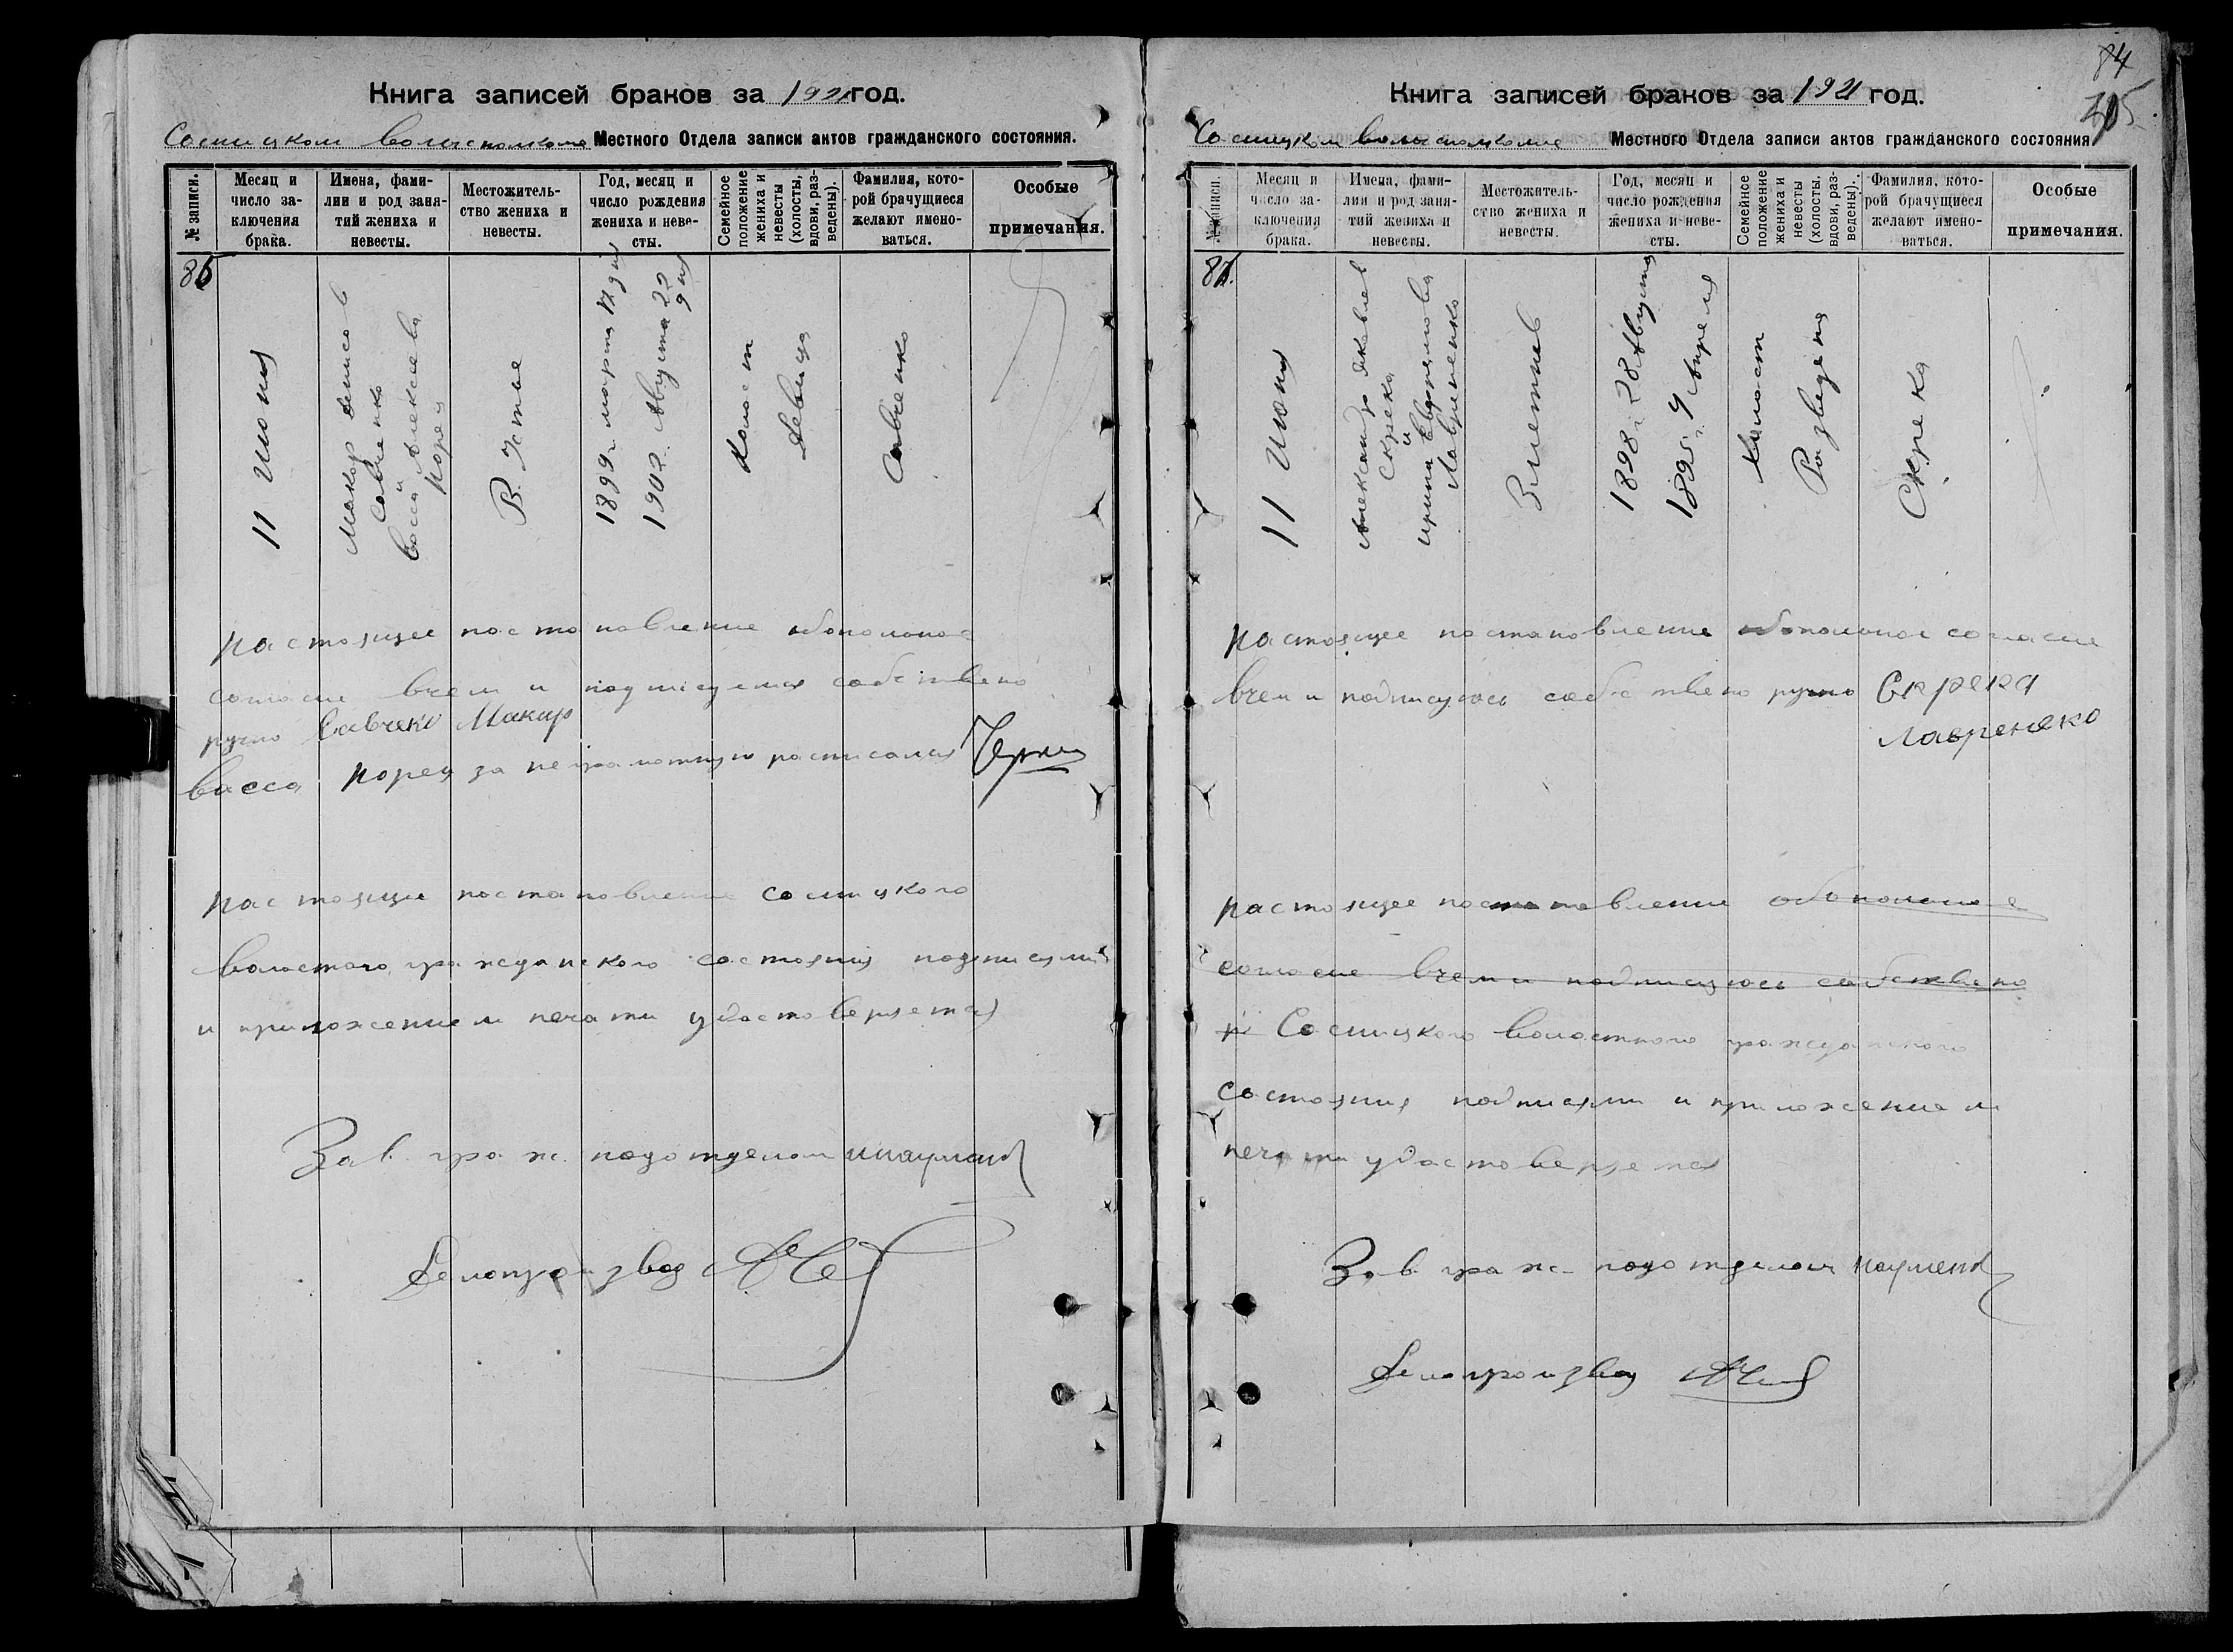 Книга записей браков за 1921 год.
Сосницком волисполкоме Местного Отдела записи актов гражданского состояния.
№ записи.
Месяц и число заключения брака.
Имена, фамилии и род занятий жениха и невесты.
Местожительство жениха и невесты.
Год, месяц и число рождения жениха и невесты.
Семейное положение жениха и невесты (холосты, вдовы, разведены).
Фамилия, которой брачущиеся желают именоваться.
Особые примечания.
86
11 Июня
Макар Денисов
Савченко
и
Васса Алексеева
Корец
В. Устье
1899 г. марта 17 дня
1902 Августа 22
дня
Холост
Девица
Савченко
Настоящее постановление обополное
согласие вчем и подписуемся собствено
ручно Савчеко Макар
Васса Корец за неграмотную расписался Черны
Настоящие постановление сосницкого
волостного гражданского состояния подписями
и приложением печати удостоверяется
Зав. граж. подотделом
Делопроизвод
84
Книга записей браков за 1921 год.
Сосницком волисполкоме Местного Отдела записи актов гражданского состояния
№ записи.
Месяц и число заключения брака.
Имена, фамилии и род занятий жениха и невесты.
Местожительство жениха и невесты.
Год, месяц и число рождения жениха и невесты.
Семейное положение жениха и невесты (холосты, вдовы, разведены).
Фамилия, которой брачущиеся желают именоваться.
Особые примечания.
87.
11 Июня
Александр Яковлев
Скрека
и
Ирина
Лавриненко
1898 г. 28 Августа
1895 г. 4 Апреля
Холост
Разведена
Скрека
Настоящее постановление обополное согласие
вчем и подписуюсь собствено ручно Скрека
Лавренеко
Настоящее постановление обополное
согласие вчем и подписуюсь собствено
Сосницкого волостного гражданского
состояния подписями и приложением
печати удостоверяется
Зав. граж. подотделом
Делопроизвод